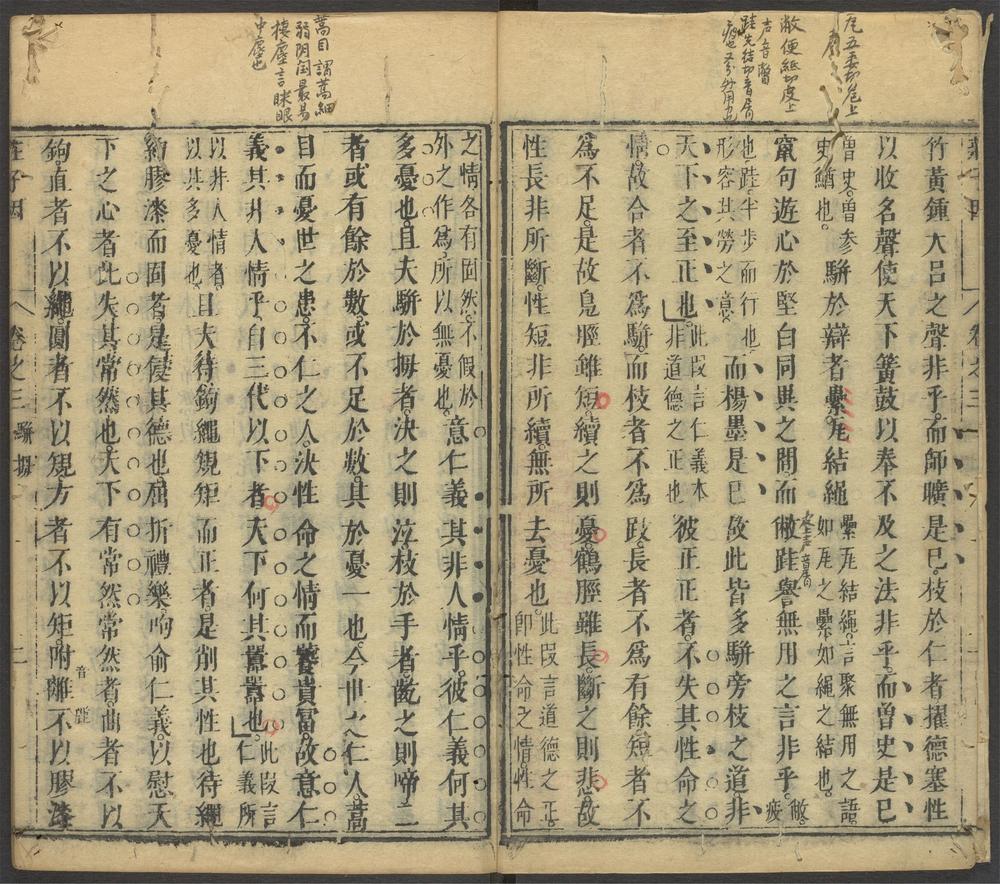 瓦五委切危上
敝便紙切皮上
声音瞥
跬先結切音屑
嵩目謂蒿細
弱陰閏最易
棲塵言眯眼
中塵也
竹黃鍾大呂之聲非乎而師曠是已枝於仁者擢德塞性
以收名聲使天下簧鼓以奉不及之法非乎而曾史是已
曾史曾參
史鰌也
駢於辯者纍瓦結繩
纍瓦結繩言聚無用之語
如瓦之纍如繩之結也
竄句遊心於堅白同異之間而敝跬譽無用之言非乎
敝
疲
也跬半步而行也
形容其勞之意
而楊墨是已故此皆多駢旁枝之道非
天下之至正也
此段言仁義本
非道德之正也
彼正正者不失其性命之
情故合者不爲駢而枝者不爲跂長者不爲有餘短者不
爲不足是故鳧脛雖短續之則憂鶴脛雖長斷之則悲故
性長非所斷性短非所續無所去憂也
此段言道德之正
即性命之情性命
之情各有固然不假於
外之作爲所以無憂也
意仁義其非人情乎彼仁義何其
多憂也且夫駢於拇者決之則泣枝於手者齕之則啼二
者或有餘於數或不足於數其於憂一也今世之仁人蒿
目而憂世之患不仁之人決性命之情而饕貴富故意仁
義其非人情乎自三代以下者天下何其囂囂也
此段言
仁義所
以非人情者
以其多憂也
且夫待鉤繩規矩而正者是削其性也待繩
約膠漆而固者是侵其德也屈折禮樂呴俞仁義以慰天
下之心者此失其常然也天下有常然常然者曲者不以
鉤直者不以繩圓者不以規方者不以矩附離
音
麗
不以膠漆
莊子因
卷之三
駢拇
二